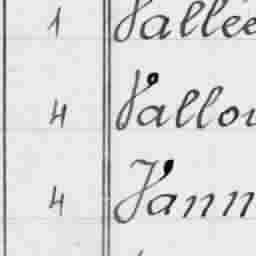 1 Vallée
4 Vallou
4 Vann